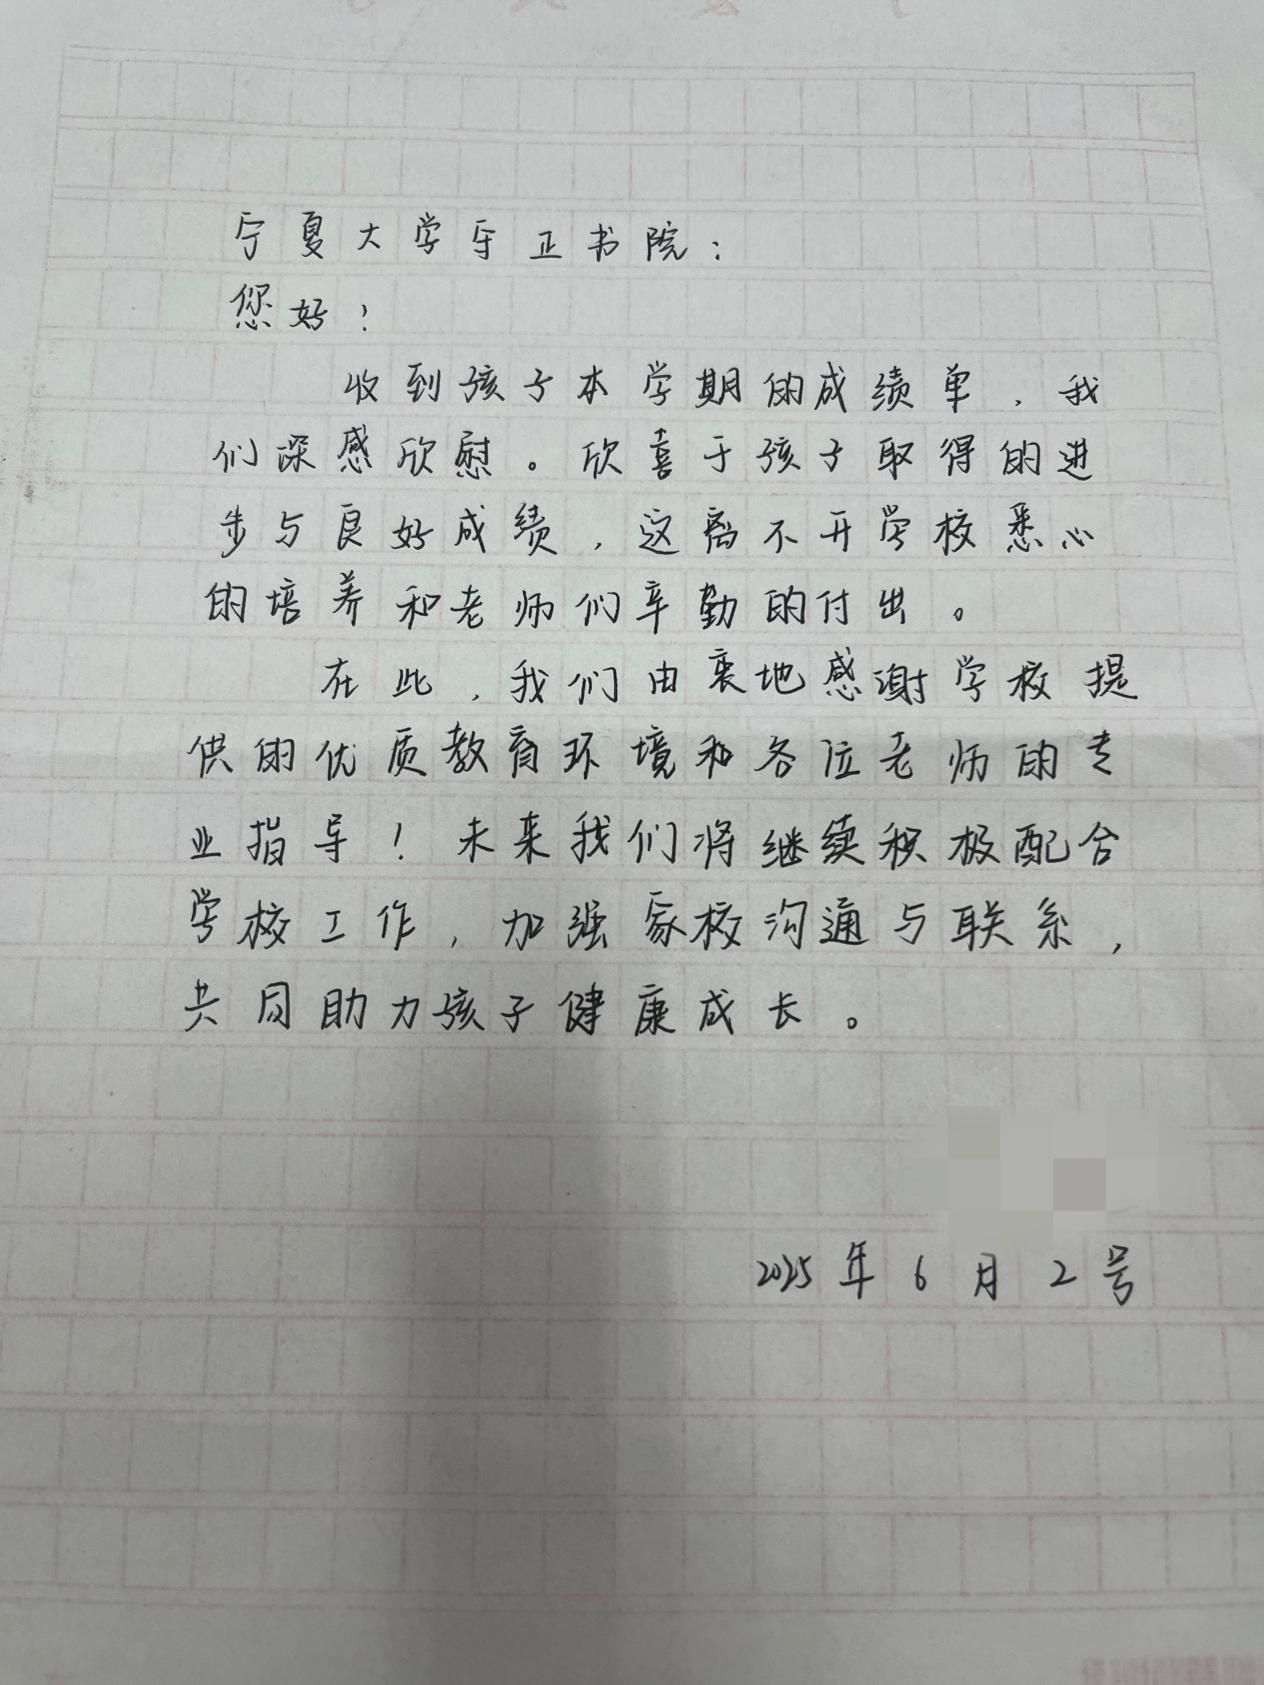 宁夏大学守正书院：
您好！
收到孩子本学期的成绩单，我
们深感欣慰。欣喜于孩子取得的进
步与良好成绩，这离不开学校悉心
的培养和老师们辛勤的付出。
在此，我们由衷地感谢学校提
供的优质教育环境和各位老师的专
业指导！未来我们将继续积极配合
学校工作，加强家校沟通与联系，
共同助力孩子健康成长。
2025年6月2号